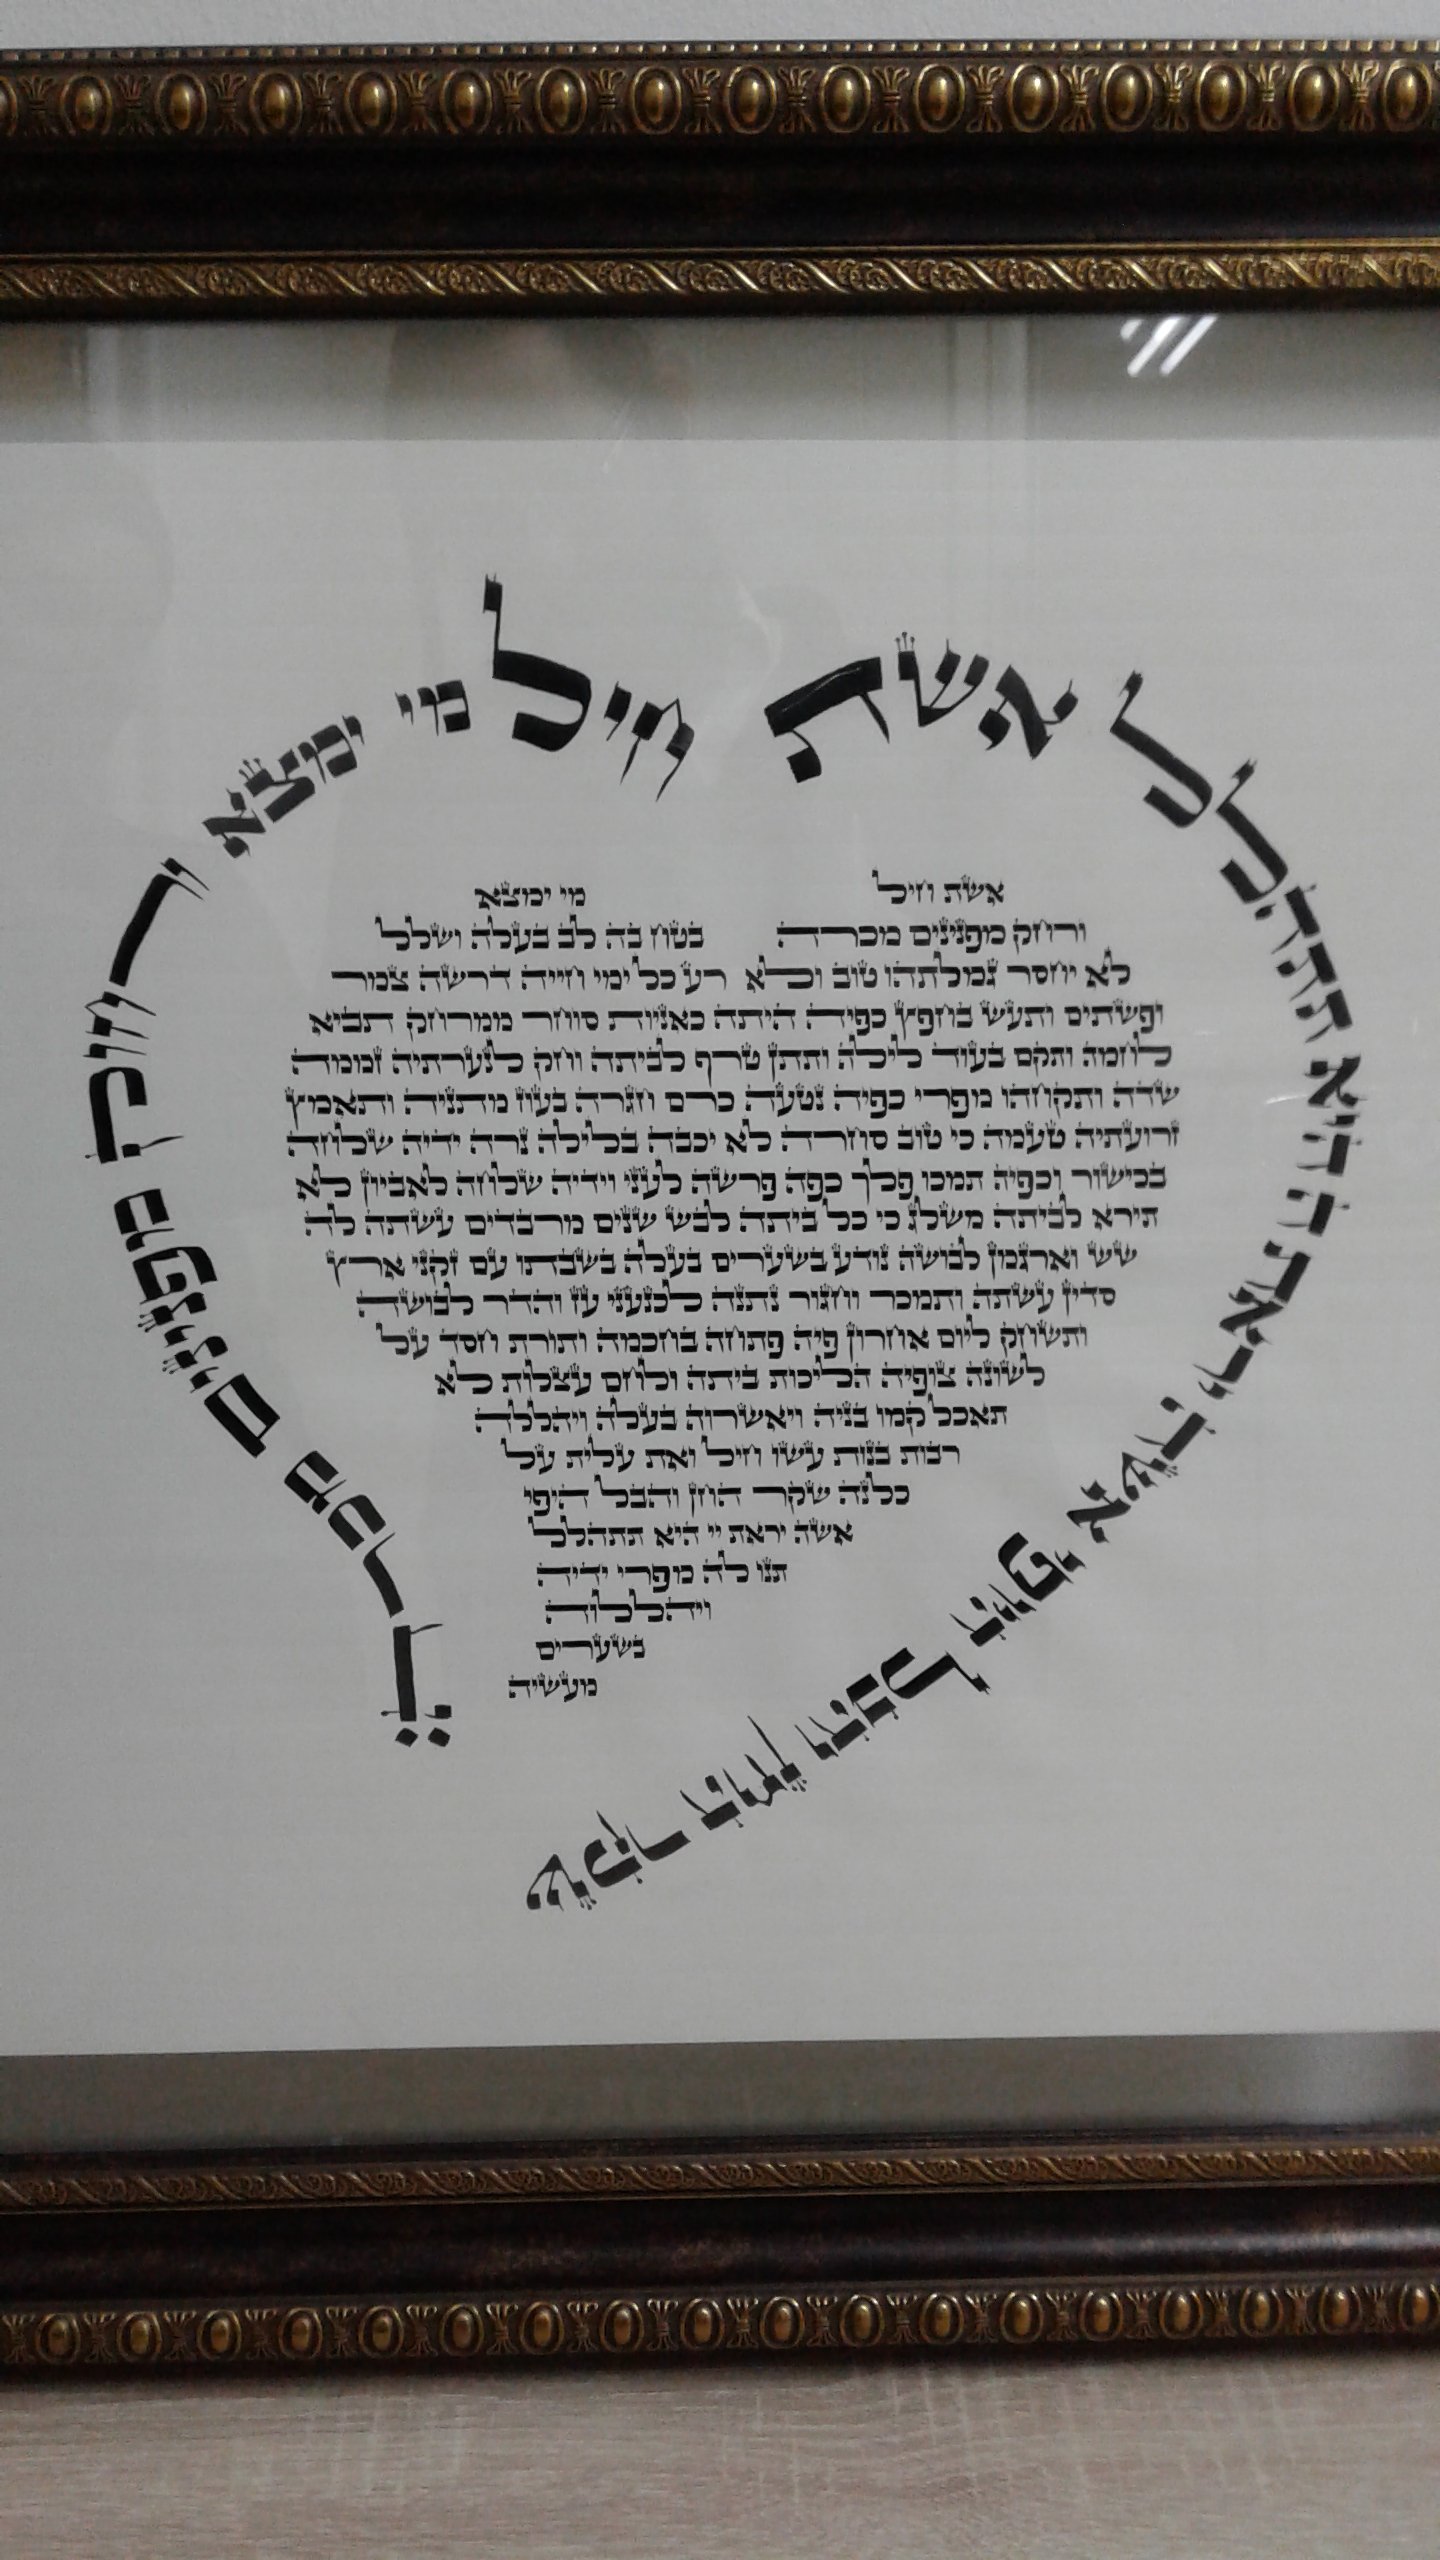 אשת חיל מי ימצא ורחוק מפנינים מכרה
שקר החן והבל היפי אשה יראת ה' היא תתהלל
אשת חיל מי ימצא
ורחק מפנינים מכרה בטח בה לב בעלה ושלל
לא יחסר גמלתהו טוב ולא רע כל ימי חייה דרשה צמר
ופשתים ותעש בחפץ כפיה היתה כאניות סוחר ממרחק תביא
לחמה ותקם בעוד לילה ותתן טרף לביתה וחק לנערתיה זממה
שדה ותקחהו מפרי כפיה נטעה כרם חגרה בעוז מתניה ותאמץ
זרועתיה טעמה כי טוב סחרה לא יכבה בלילה נרה ידיה שלחה
בכישור וכפיה תמכו פלך כפה פרשה לעני וידיה שלחה לאביון לא
תירא לביתה משלג כי כל ביתה לבש שנים מרבדים עשתה לה
שש וארגמן לבושה נודע בשערים בעלה בשבתו עם זקני ארץ
סדין עשתה ותמכר וחגור נתנה לכנעני עז והדר לבושה
ותשחק ליום אחרון פיה פתחה בחכמה ותורת חסד על
לשונה צופיה הליכות ביתה ולחם עצלות לא
תאכל קמו בניה ויאשרוה בעלה ויהללה
רבות בנות עשו חיל ואת עלית על
כלנה שקר החן והבל היפי
אשה יראת יי היא תתהלל
תנו לה מפרי ידיה
ויהללוה
בשערים
מעשיה